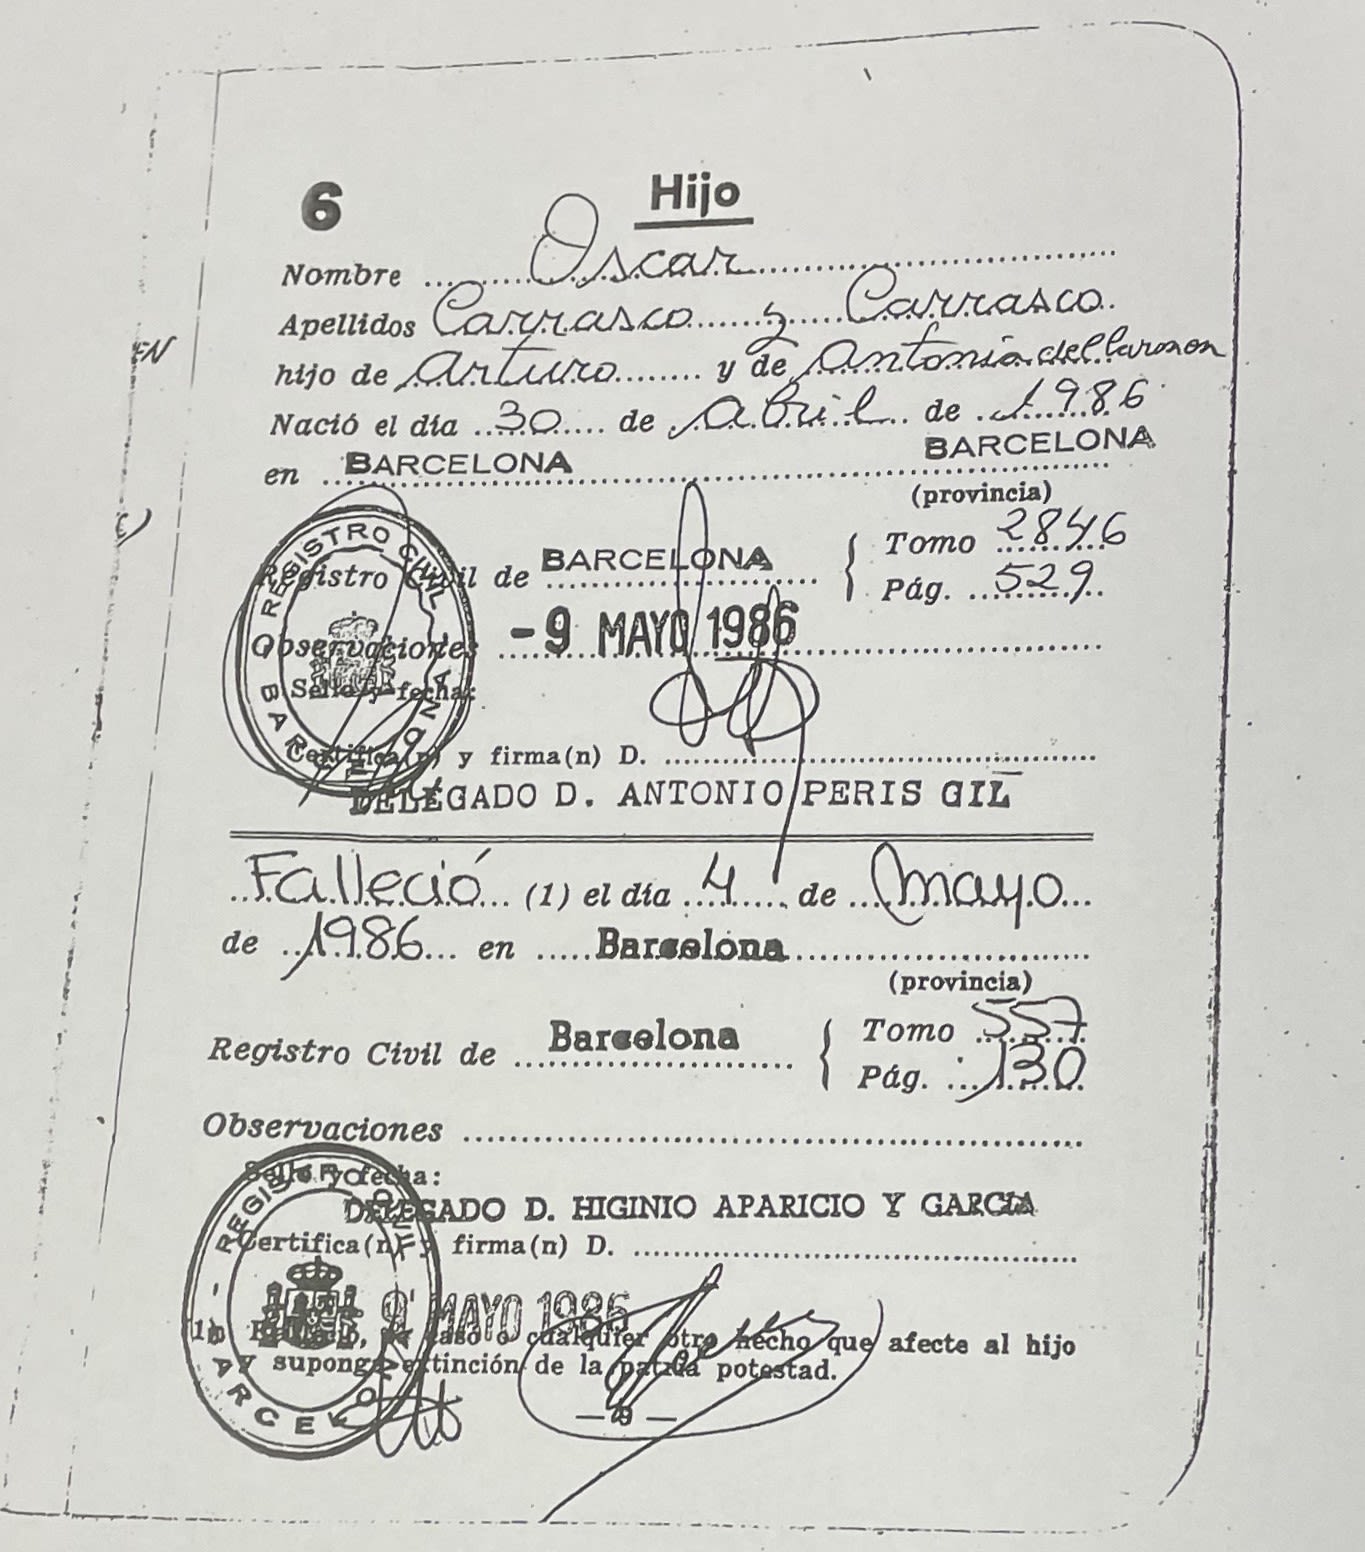 6 Hijo
Nombre Oscar
Apellidos Carrasco y Carrasco
hijo de Arturo y de Antonia del Carmen
Nació el día 30 de Abril de 1986
en BARCELONA BARCELONA
(provincia)
Registro Civil de BARCELONA
Tomo 2846
Pág. 529
Observaciones -9 MAYO 1986
Sello y fecha:
REGISTRO CIVIL
BARCELONA
Certifica(n) y firma(n) D.
DELEGADO D. ANTONIO PERIS GIL
Falleció (1) el día 4 de mayo
de 1986 en Barcelona
(provincia)
Registro Civil de Barcelona
Tomo 557
Pág. 130
Observaciones
Sello y fecha:
DELEGADO D. HIGINIO APARICIO Y GARCIA
Certifica(n) y firma(n) D.
REGISTRO CIVIL
- BARCELONA
9 MAYO 1986
o cualquier otro hecho que afecte al hijo
y suponga extinción de la patria potestad.
EN